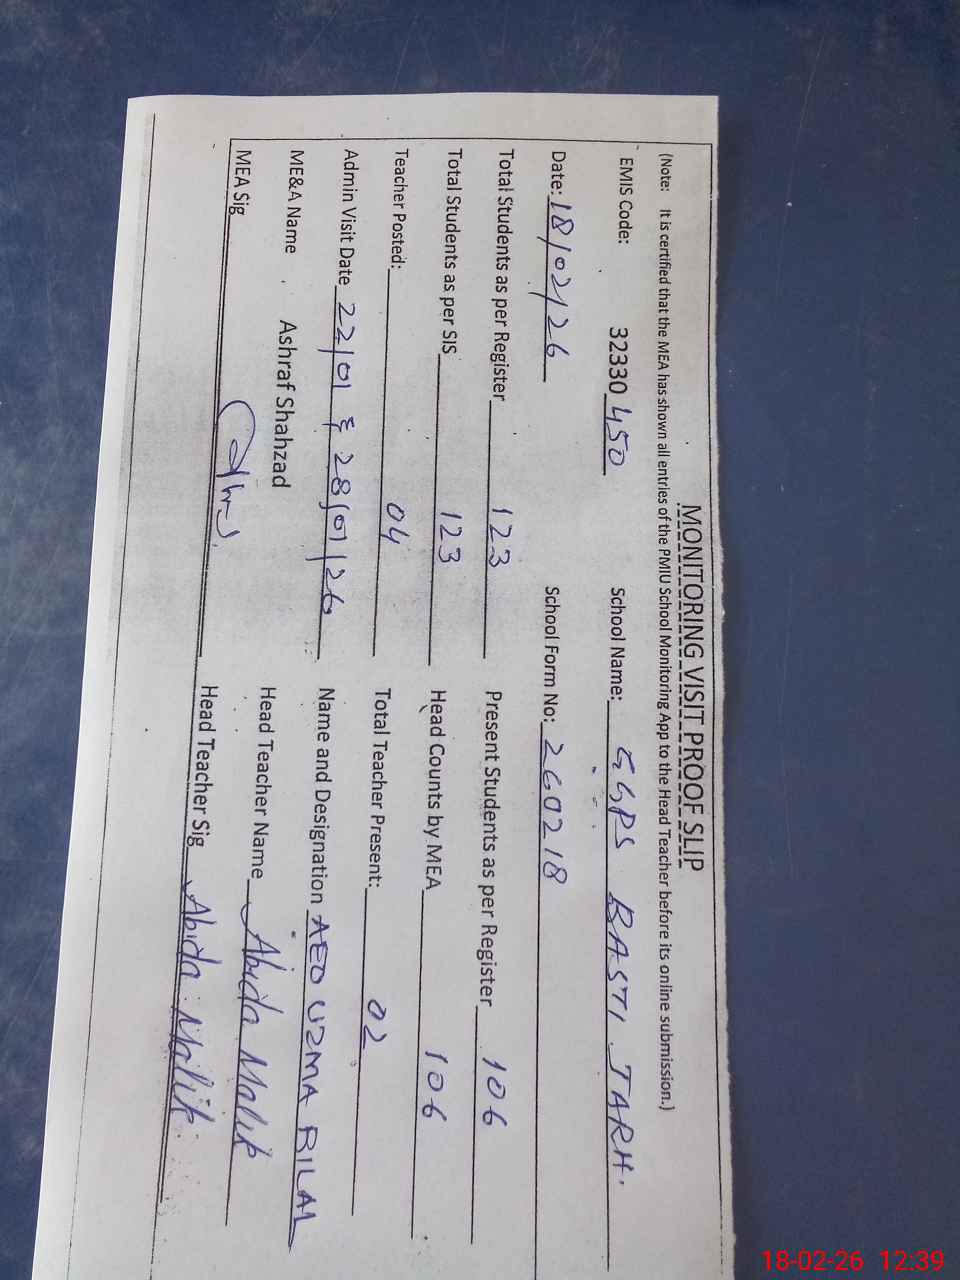 MONITORING VISIT PROOF SLIP
(Note: It is certified that the MEA has shown all entries of the PMIU School Monitoring App to the Head Teacher before its online submission.)
EMIS Code: 32330 450 School Name: GGPS BASTI TARH.
Date: 18/02/26 School Form No: 260218
Total Students as per Register 123 Present Students as per Register 106
Total Students as per SIS 123 Head Counts by MEA 106
Teacher Posted: 04 Total Teacher Present: 02
Admin Visit Date 22/01 & 28/01/26 Name and Designation AEO UZMA BILAL
ME&A Name Ashraf Shahzad Head Teacher Name Abida Malik
MEA Sig Head Teacher Sig Abida Malik
18-02-26 12:39